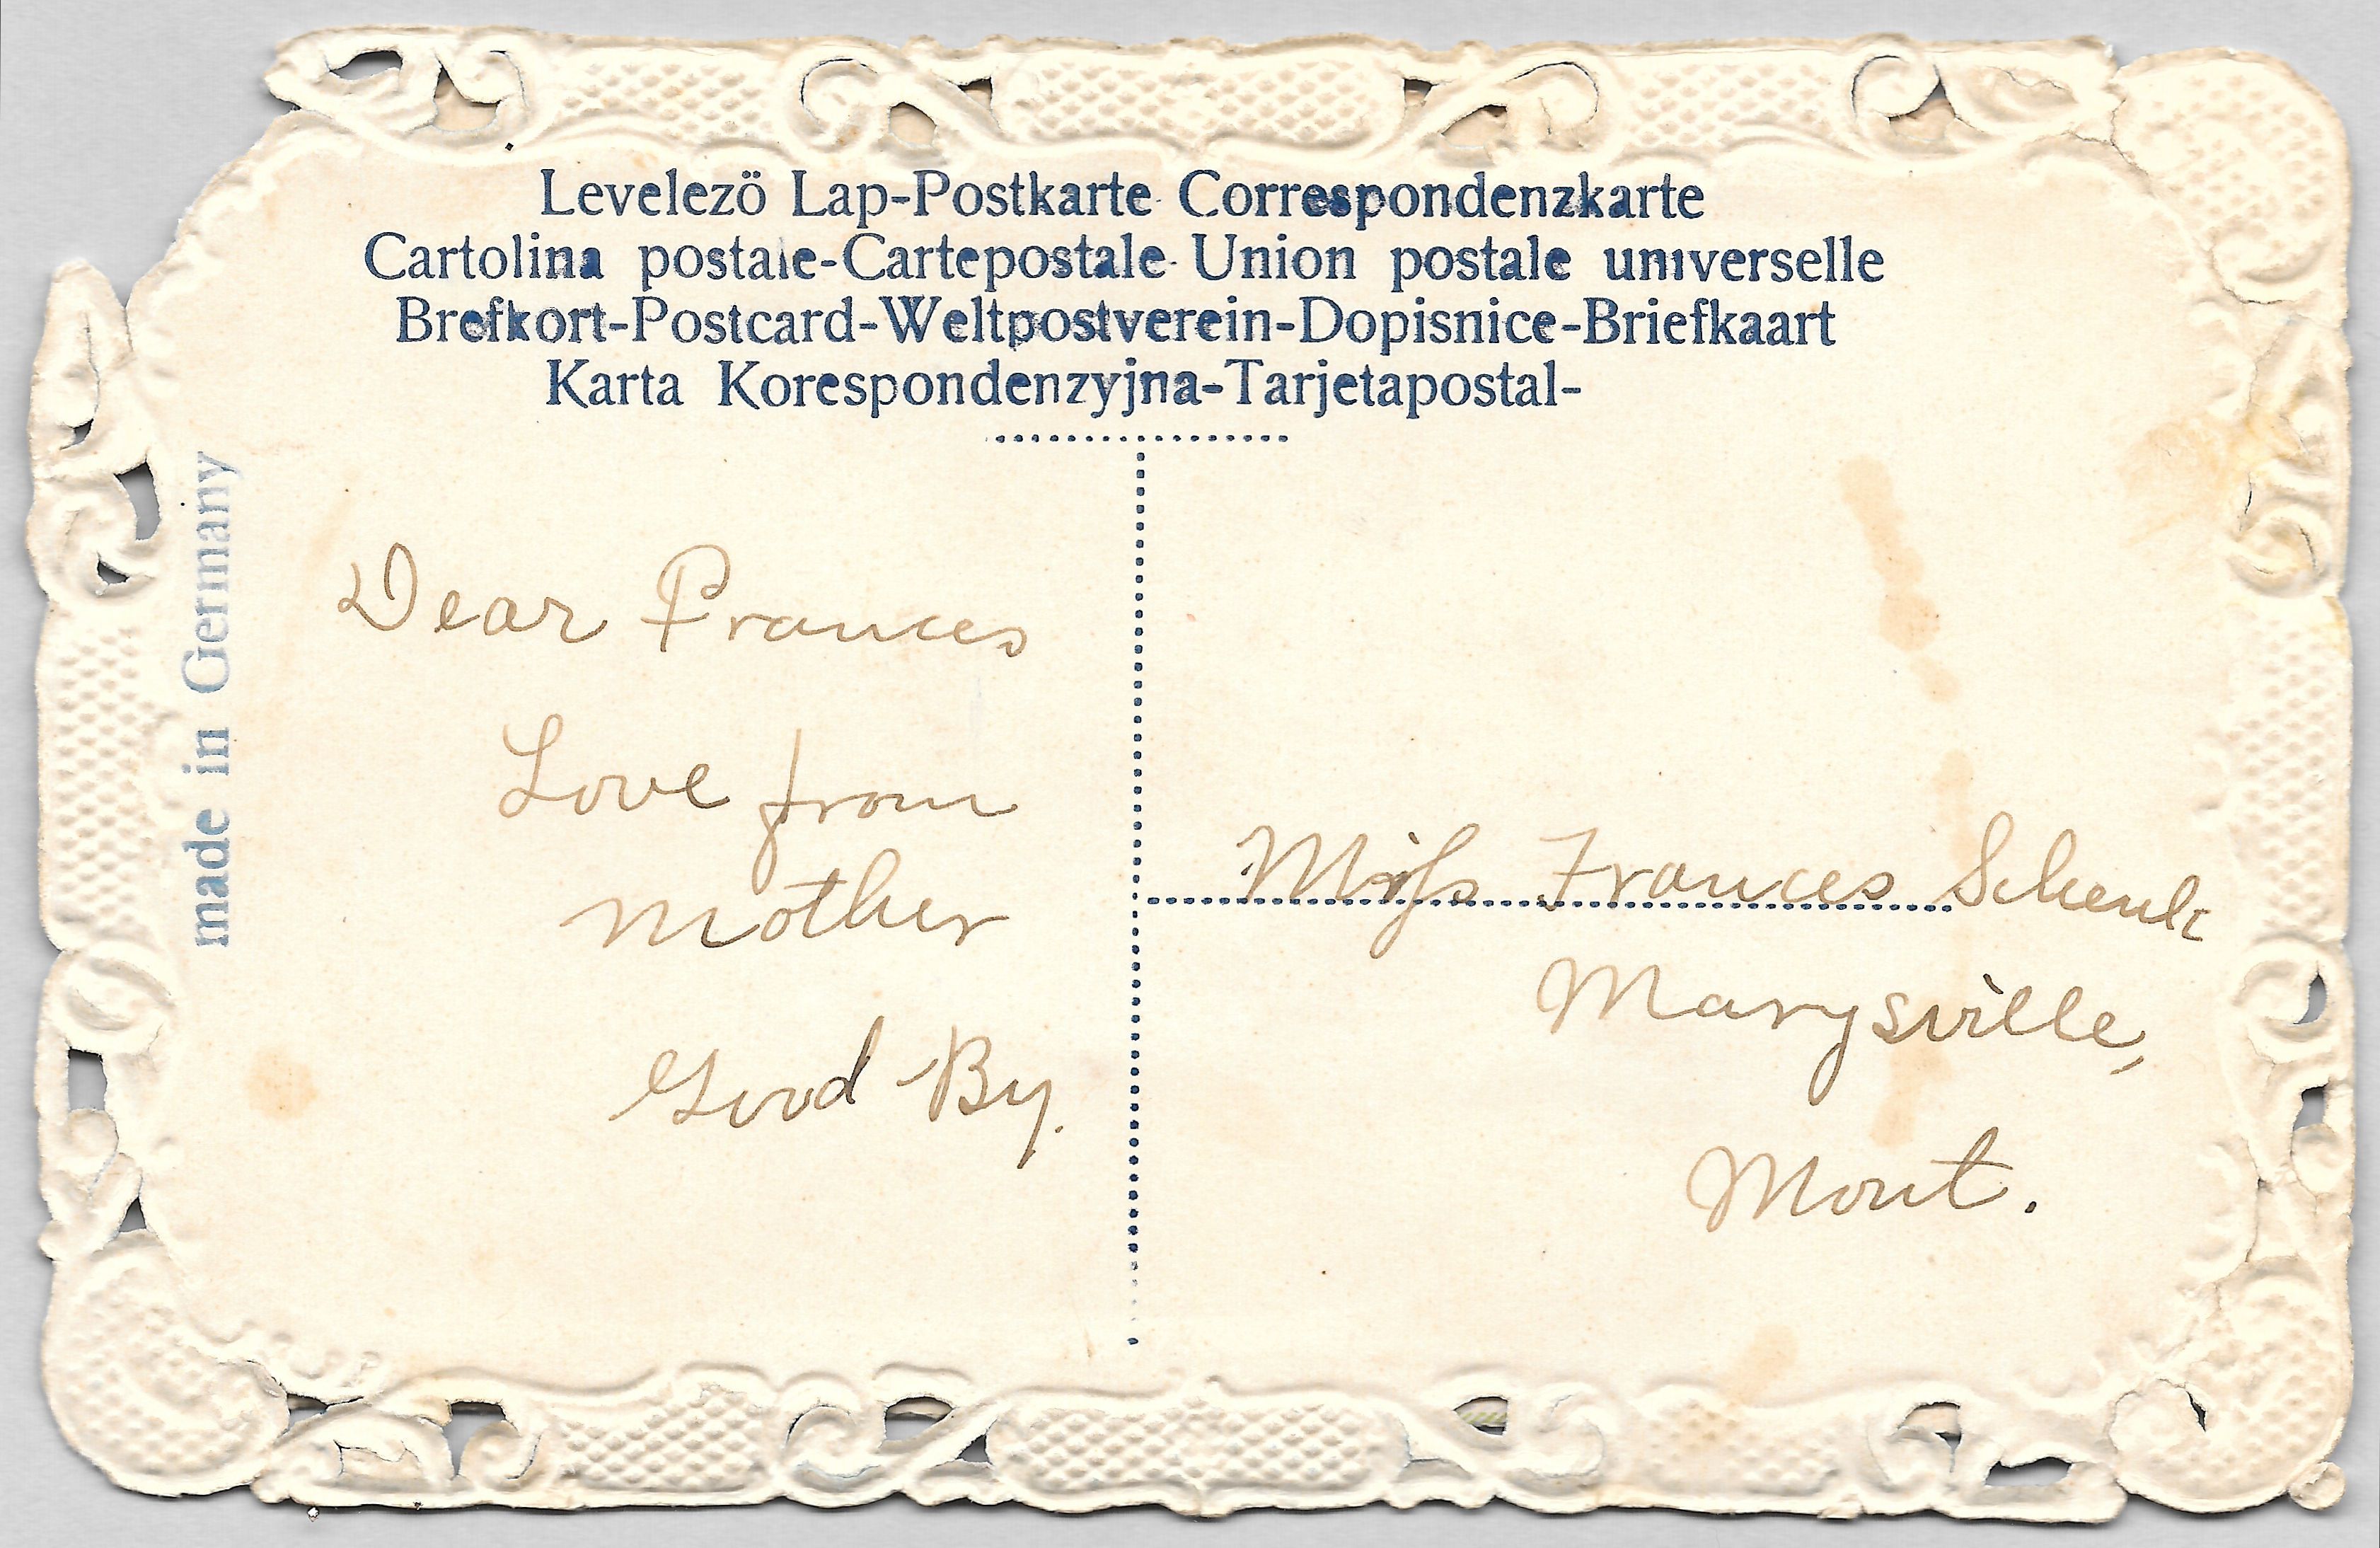 Levelezö Lap-Postkarte Correspondenzkarte
Cartolina postale-Cartepostale Union postale universelle
Brefkort-Postcard-Weltpostverein-Dopisnice-Briefkaart
Karta Korespondenzyjna-Tarjetapostal-
made in Germany
Dear Frances
Love from
Mother
Good By.
Miss Frances Schenk
Marysville,
Mont.